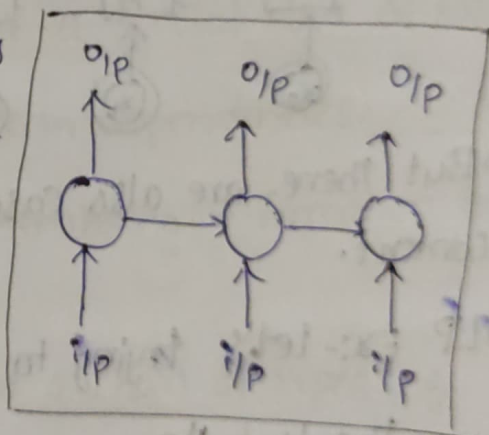 O/P O/P O/P
i/P i/P i/P